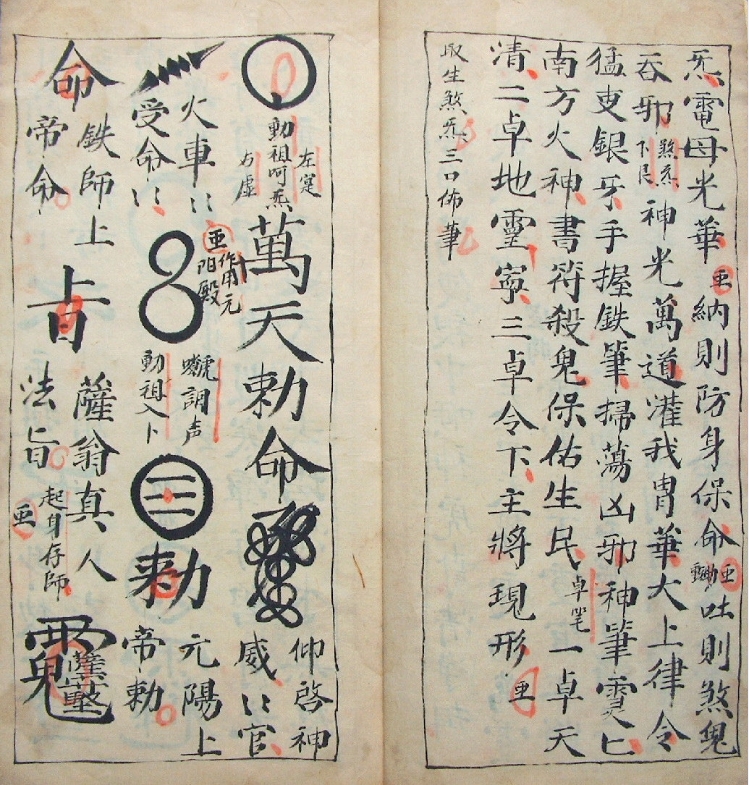 炁電母光華 納則防身保命 吐則煞鬼
吞邪 煞炁下良 神光萬道灌我胃華大上律令
猛吏銀牙手握鉄筆掃蕩凶邪神筆靈匕
南方火神書符殺鬼保佑生民 卓笔 一卓天
清二卓地靈寧三卓令下主將現形
取生煞炁三口佈筆
動祖呵炁
左定
右虛
萬天勅命
仰啓神
威冫官
火車冫
受命冫
作用元
陽殿
調声
動祖入卜
勅
元陽上
帝勅
命
鉄師上
帝命
薩翁真人
法旨
起身存師